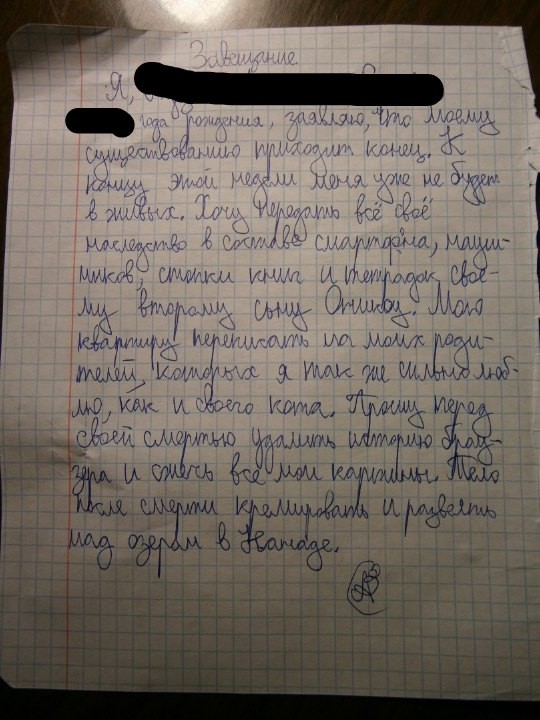 Завещание
Я,
года рождения, заявляю, что моему
существованию приходит конец. К
концу этой недели меня уже не будет
в живых. Хочу передать всё своё
наследство в составе смартфона, науш-
ников, стопки книг и тетрадок свое-
му второму сыну
Мою
квартиру переписать на моих роди-
телей, которых я так же сильно люб-
лю, как и своего кота. Прошу перед
своей смертью удалить историю брау-
зера и сжечь все мои картины. Тело
после смерти кремировать и развеять
над озером в Канаде.